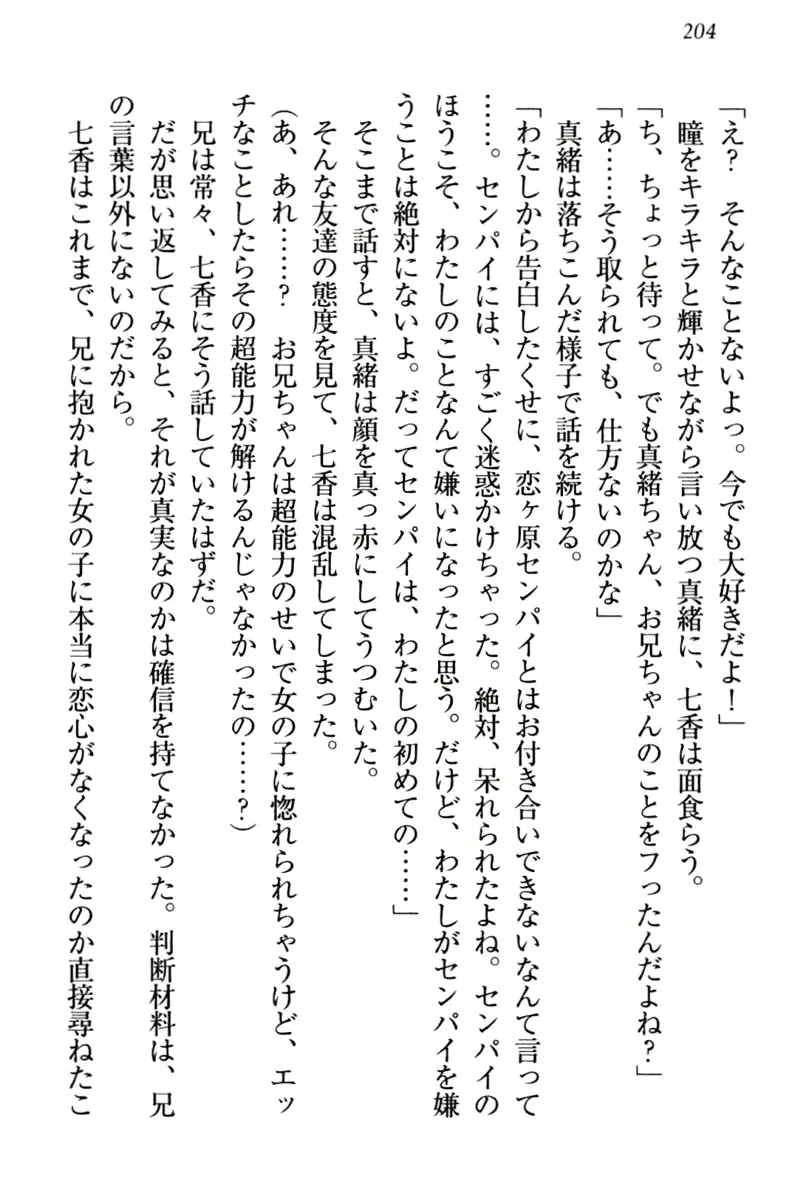 204
「え?　そんなことないよっ。今でも大好きだよ!」
　瞳をキラキラと輝かせながら言い放つ真緒に、七香は面食らう。
「ち、ちょっと待って。でも真緒ちゃん、お兄ちゃんのことをフったんだよね?」
「あ……そう取られても、仕方ないのかな」
　真緒は落ちこんだ様子で話を続ける。
「わたしから告白したくせに、恋ヶ原センパイとはお付き合いできないなんて言って
……。センパイには、すごく迷惑かけちゃった。絶対、呆れられたよね。センパイの
ほうこそ、わたしのことなんて嫌いになったと思う。だけど、わたしがセンパイを嫌
うことは絶対にないよ。だってセンパイは、わたしの初めての……」
　そこまで話すと、真緒は顔を真っ赤にしてうつむいた。
　そんな友達の態度を見て、七香は混乱してしまった。
(あ、あれ……?　お兄ちゃんは超能力のせいで女の子に惚れられちゃうけど、エッ
チなことしたらその超能力が解けるんじゃなかったの……?)
　兄は常々、七香にそう話していたはずだ。
　だが思い返してみると、それが真実なのかは確信を持てなかった。判断材料は、兄
の言葉以外にないのだから。
　七香はこれまで、兄に抱かれた女の子に本当に恋心がなくなったのか直接尋ねたこ